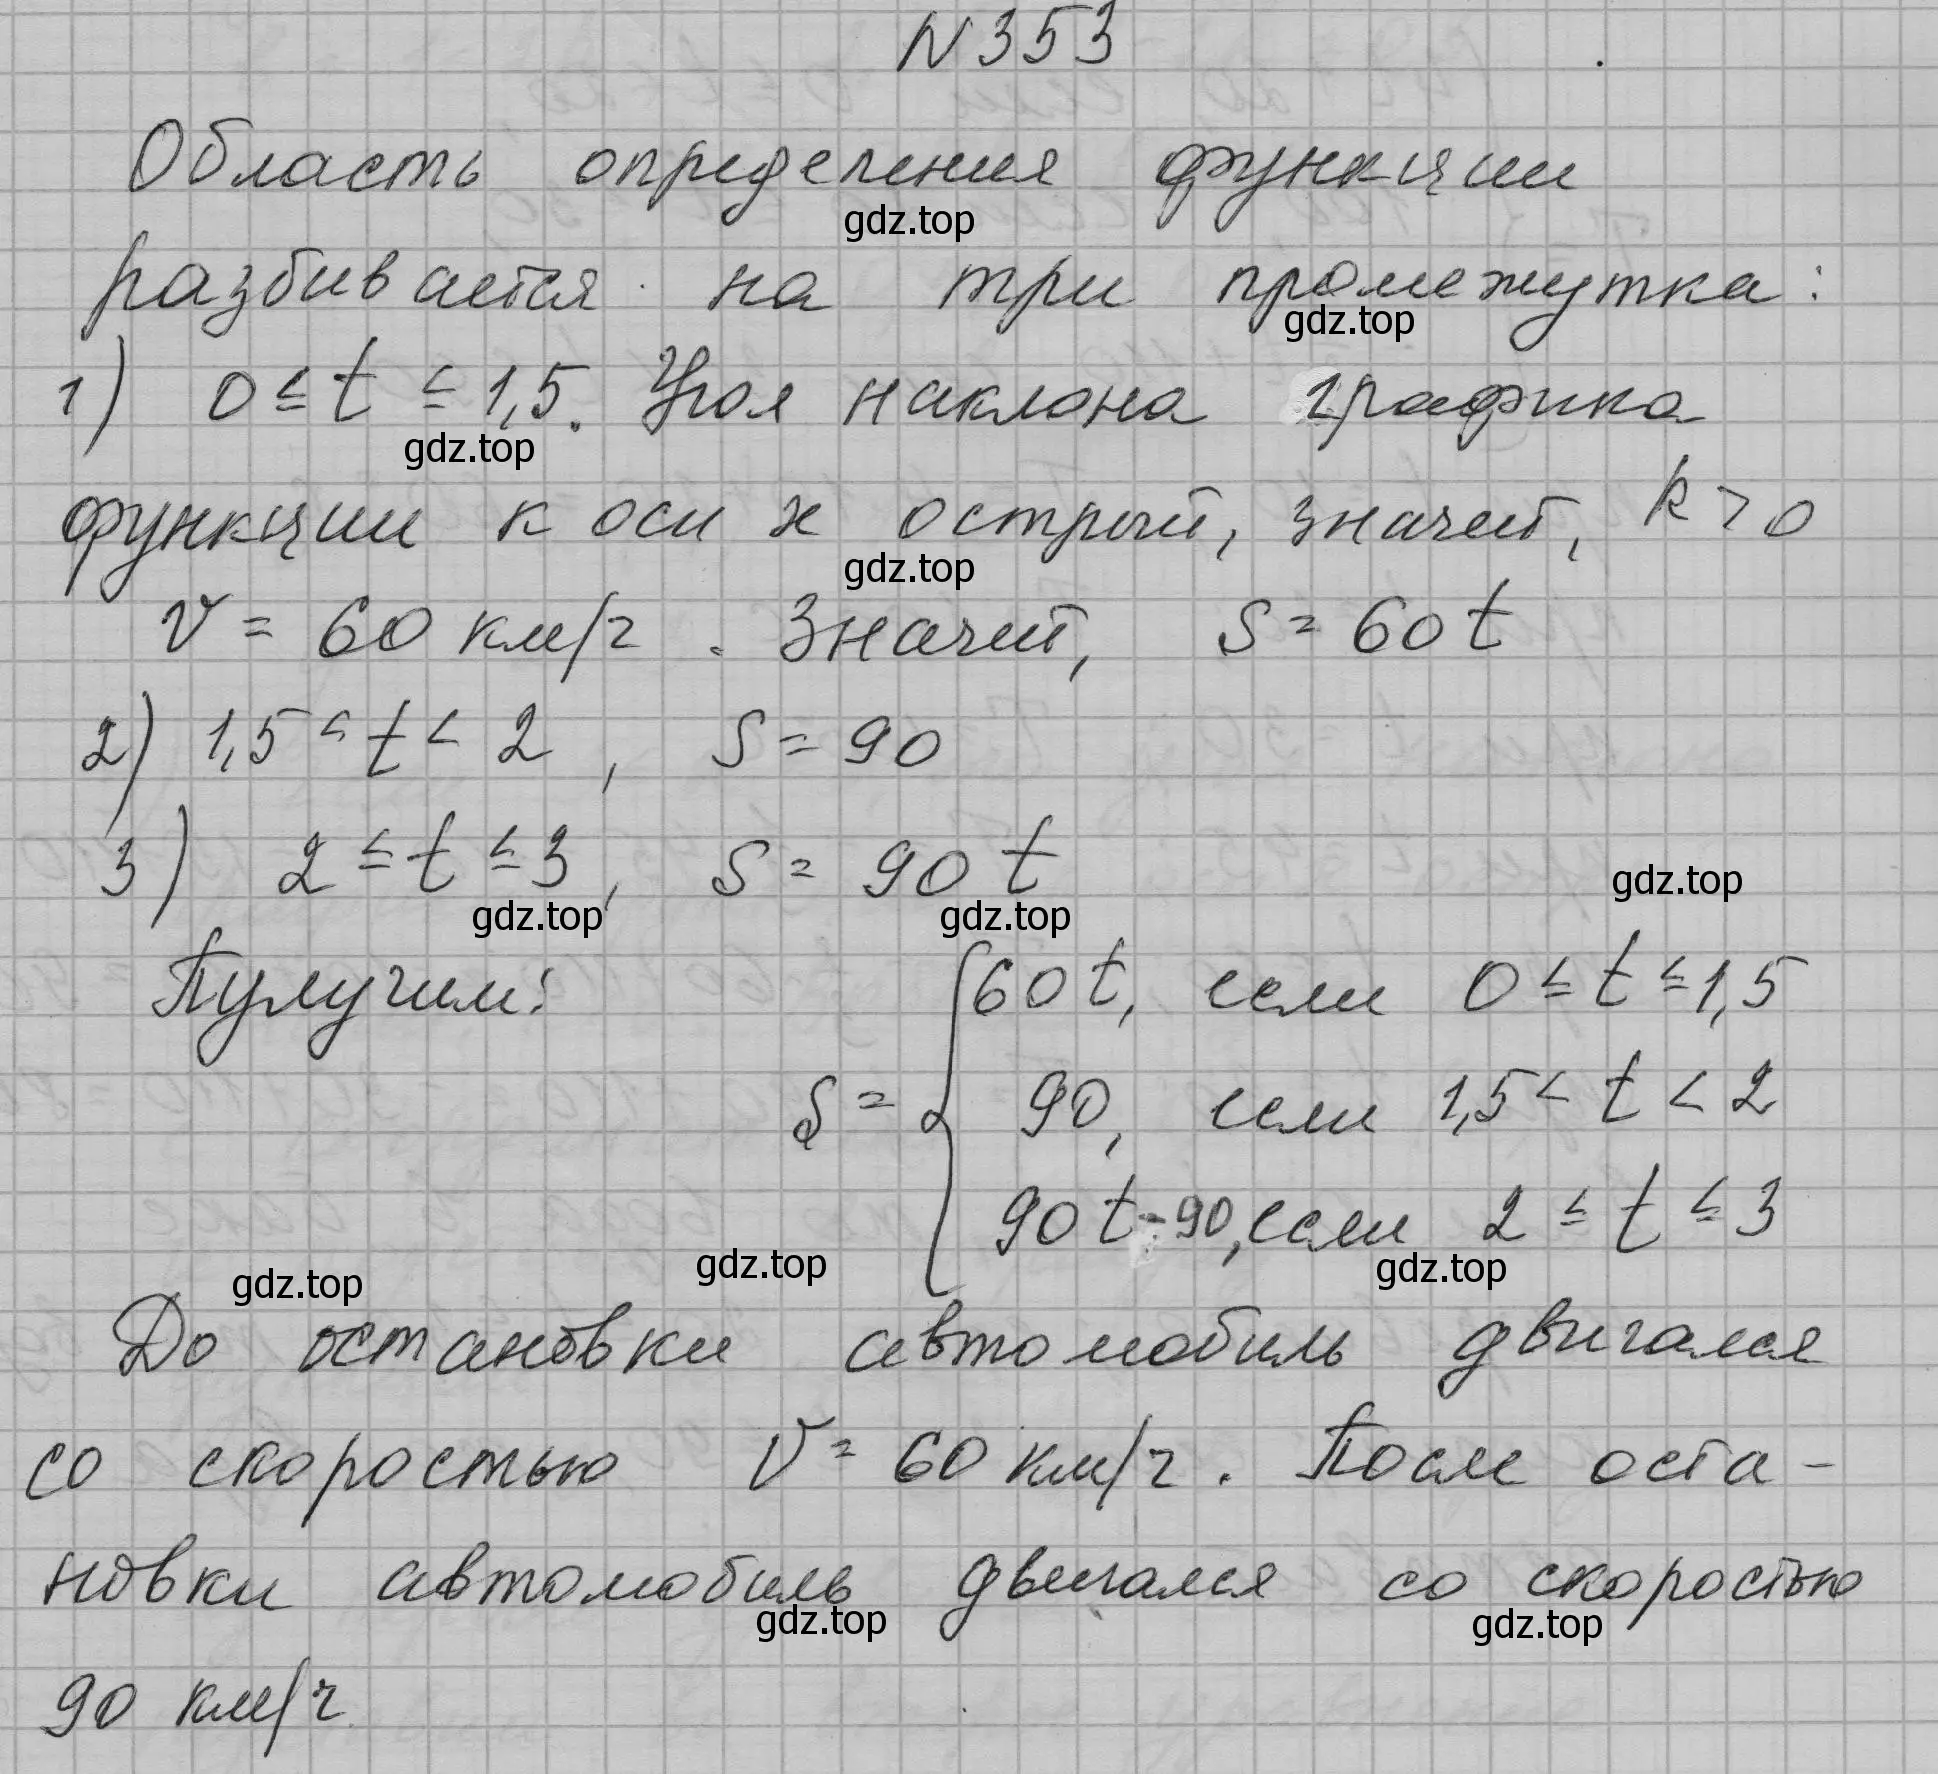 N 353
Область определения функции
gdz.top
разбивается на три промежутка:
gdz.top
1) 0 ≤ t ≤ 1,5. Угол наклона графика
gdz.top
функции к оси x острый, значит, k > 0
gdz.top
v = 60 км/ч. Значит, S = 60t
2) 1,5 < t < 2, S = 90
3) 2 ≤ t ≤ 3, S = 90t
gdz.top
gdz.top gdz.top
Пулучим: 60t, если 0 ≤ t ≤ 1,5
S = { 90, если 1,5 < t < 2
90t - 90, если 2 ≤ t ≤ 3
gdz.top gdz.top gdz.top
До остановки автомобиль двигался
со скоростью V = 60 км/ч. После оста-
новки автомобиль двигался со скоростью
gdz.top gdz.top
90 км/ч